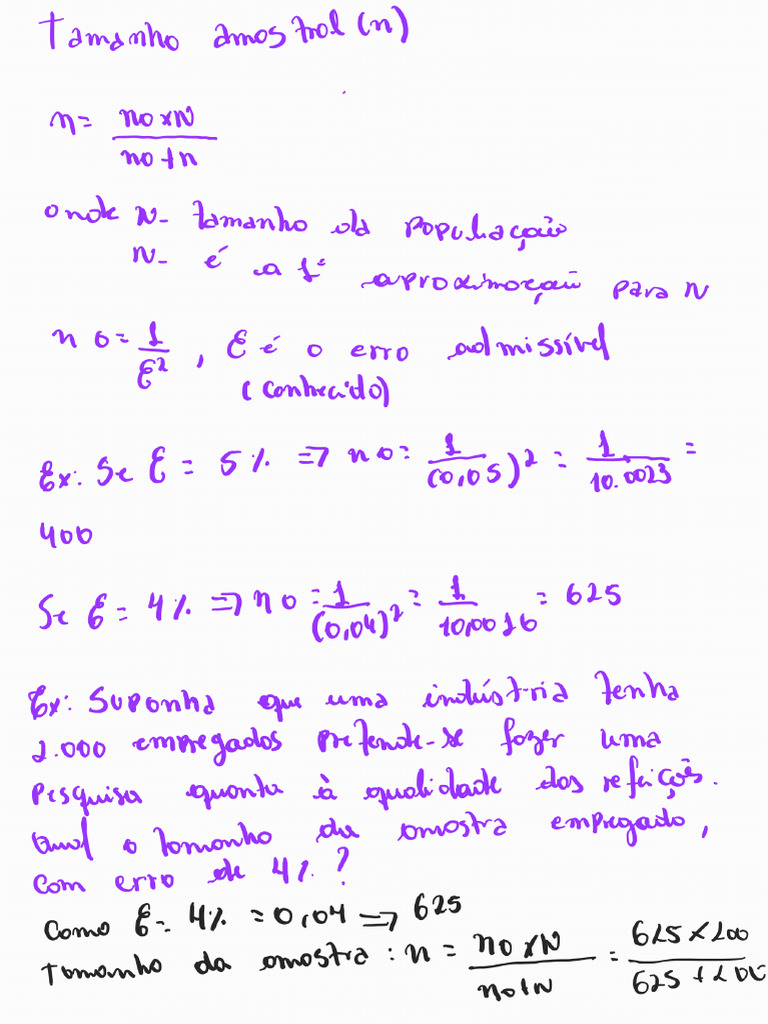 Tamanho amostral (n)
n = no x N / no + n
onde N - tamanho da População
N - é a 1ª aproximação para N
no = 1 / E², E é o erro admissível
(conhecido)
Ex: Se E = 5% ⇒ no = 1 / (0,05)² = 1 / 10.0023 =
400
Se E = 4% ⇒ no = 1 / (0,04)² = 1 / 10,0016 = 625
Ex: Suponha que uma indústria tenha
2.000 empregados pretende-se fazer uma
pesquisa quanto à qualidade das refeições.
Qual o tamanho da amostra empregado,
com erro de 4%?
Como E = 4% = 0,04 ⇒ 625
Tamanho da amostra: n = no x N / no + N = 625 x 200 / 625 + 200